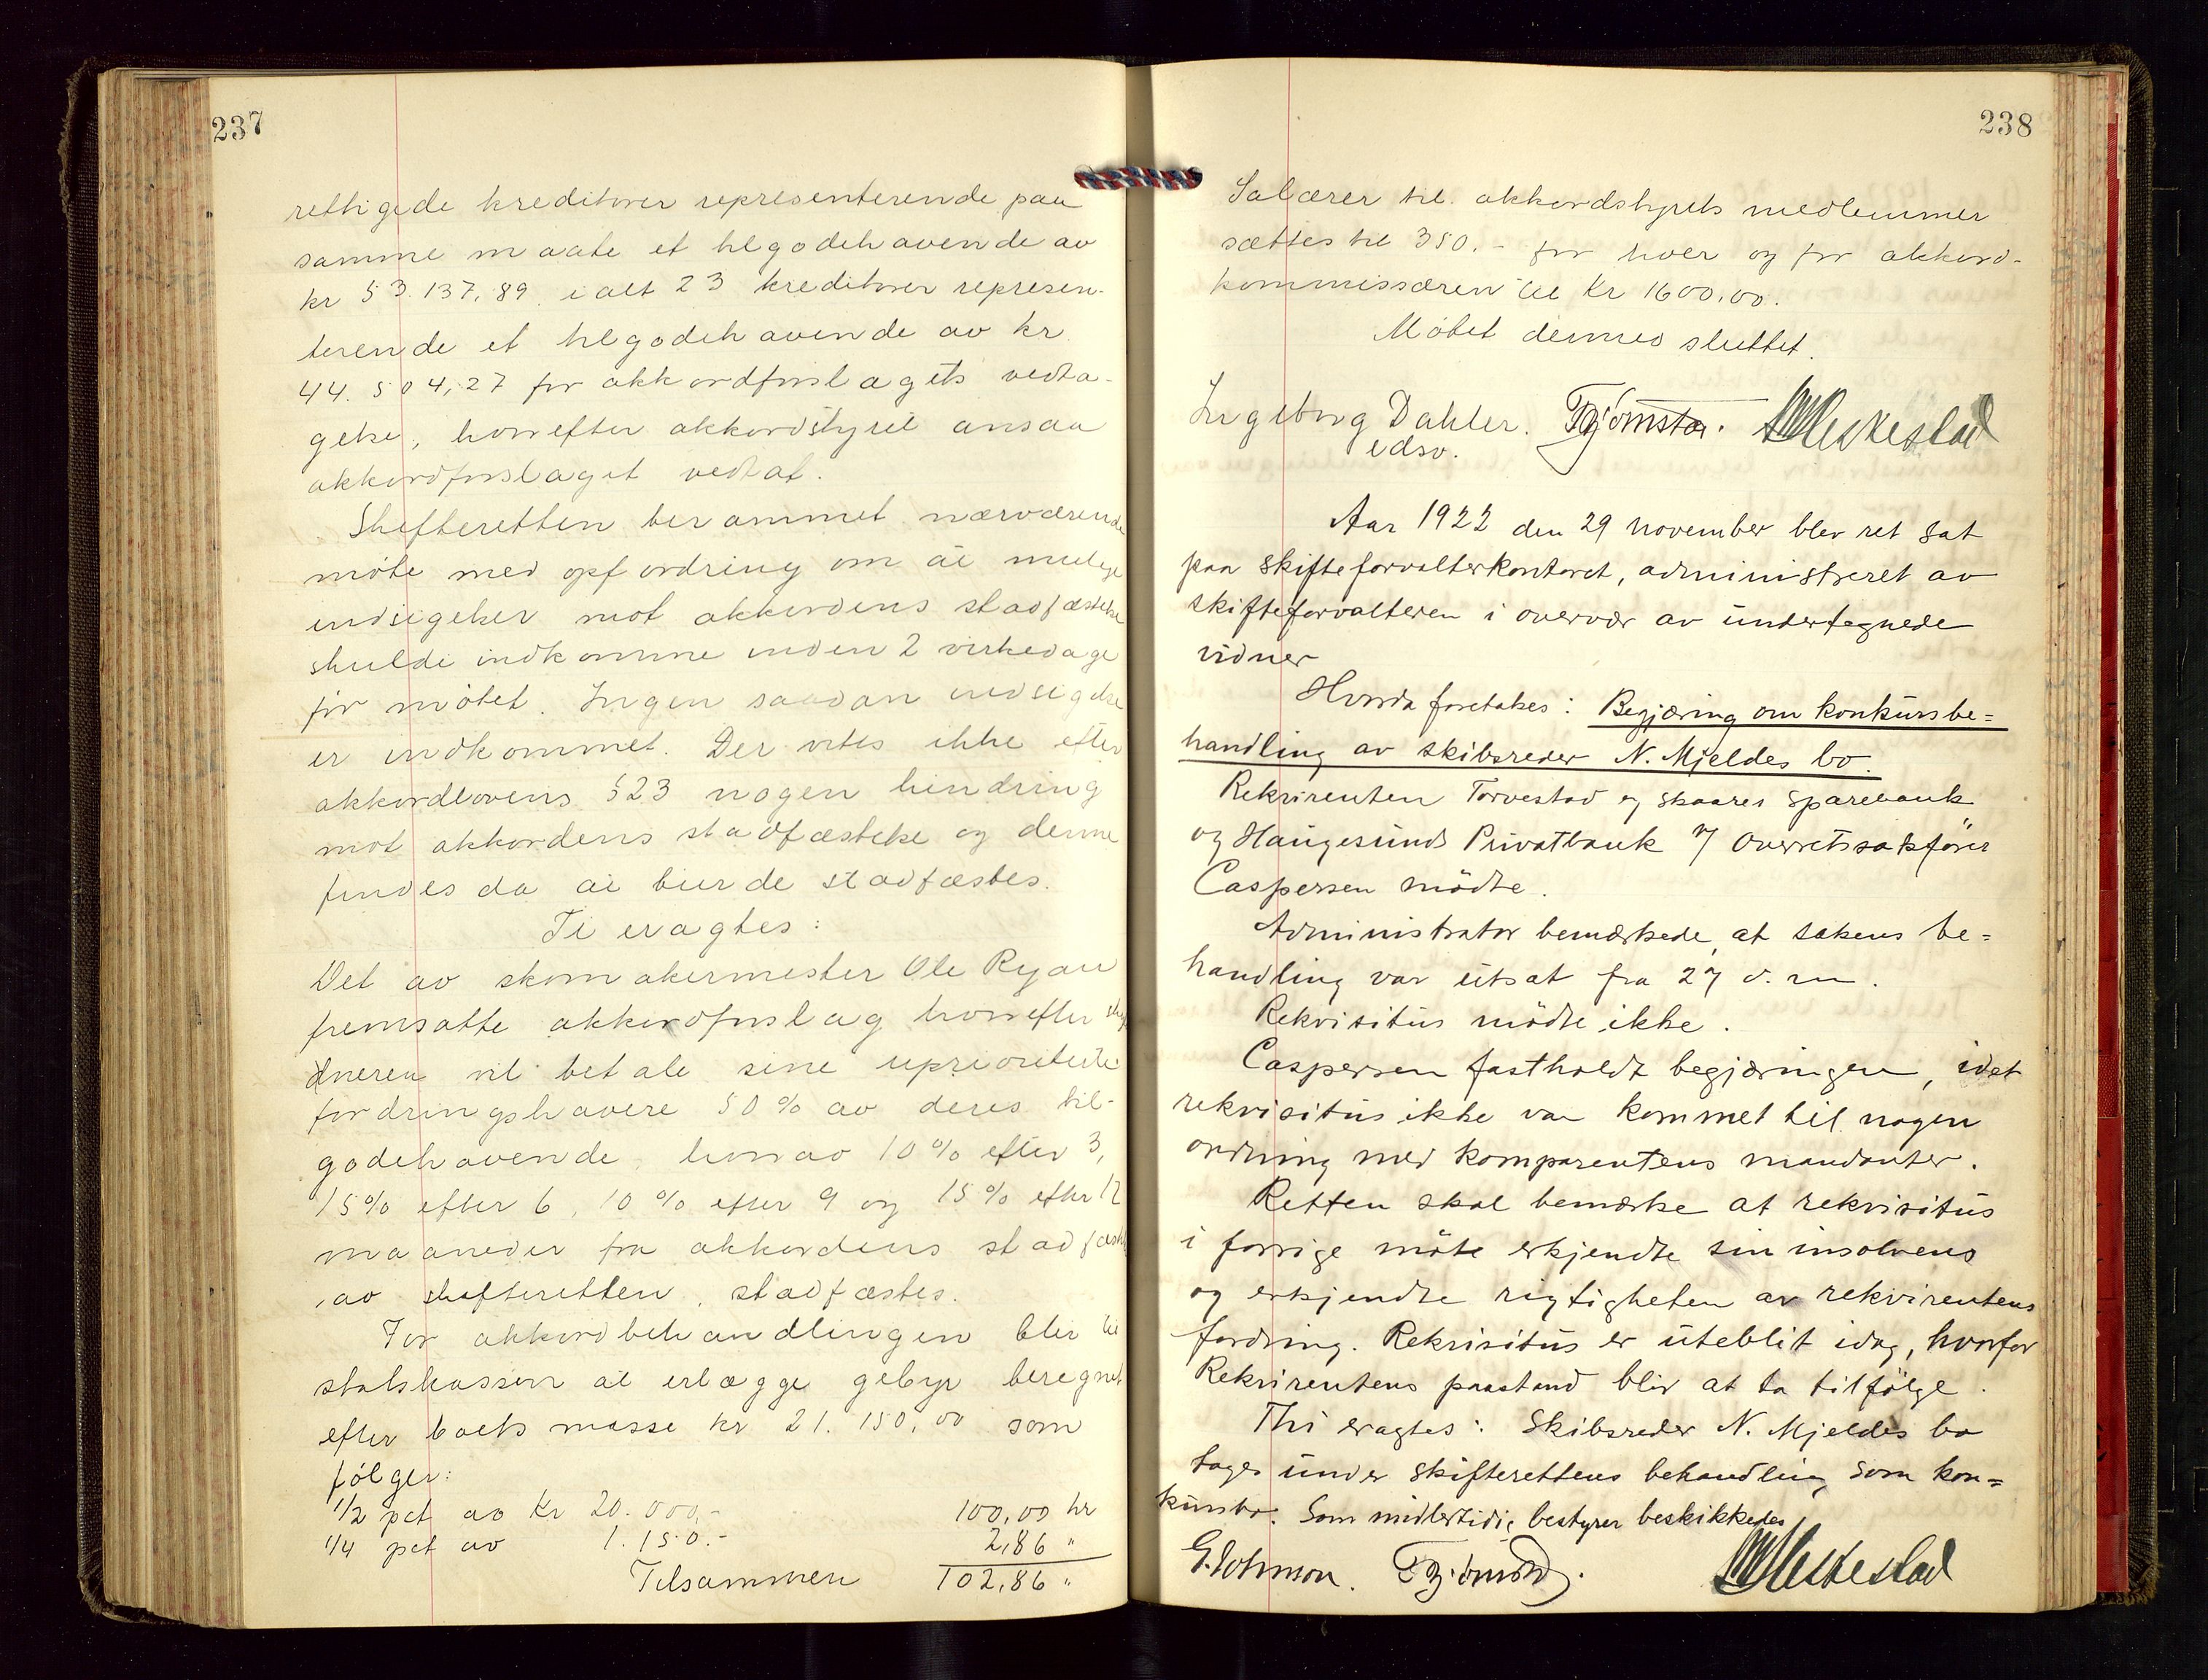 237
rettigede kreditorer representerende paa
samme maate et tilgodehavende av
kr 53.137,89, ialt 23 kreditorer represen-
terende et tilgodehavende av kr
44.504,27 for akkordforslagets vedta-
gelse, hvorefter akkordstyret ansaa
akkordforslaget vedtat.
Skifteretten berammet nærværende
møte med opfordring om at mulige
indsigelser mot akkordens stadfæstelse
skulde indkomme inden 2 virkedage
før møtet. Ingen saadan indsigelse
er indkommet. Der vites ikke efter
akkordlovens §23 nogen hindring
mot akkordens stadfæstelse og denne
findes da at burde stadfæstes.
Ti eragtes:
Det av skomakermester Ole Ryan
fremsatte akkordforslag hvorefter skyl
dneren vil betale sine uprioriterte
fordringshavere 50% av deres til-
godehavende, hvorav 10% efter 3,
15% efter 6, 10% efter 9 og 15% efter 12
maaneder fra akkordens stadfæstelse
av skifteretten, stadfæstes.
For akkordbehandlingen blir til
statskassen at erlægge gebyr beregnet
efter boets masse kr 21.150,00 som
følger:
1/2 pct av Kr 20.000,- 100,00 kr
1/4 pct av 1.150.- 2,86 "
Tilsammen 102,86 "
238
Salærer til akkordstyrets medlemmer
sættes til 350.- for hver og for akkord-
kommissæren til Kr 1600,00.
Møtet dermed sluttet.
Ingeborg Dahler.
edsv.
Aar 1922 den 29 november blev ret sat
paa skifteforvalterkontoret, administreret av
skifteforvalteren i overvær av undertegnede
vidner
Hvorda foretokes: Begjæring om konkursbe=
handling av skibsreder N. Mjeldes bo.
Rekvirenten Torvestad og Skaares Sparebank
og Haugesunds Privatbank v/ Overretssakfører
Caspersen mødte.
Administrator bemærkede, at sakens be=
handling var utsat fra 27 d.m.
Rekvisitus mødte ikke.
Caspersen fastholdt begjæringen, idet
rekvisitus ikke var kommet til nogen
ordning med komparentens mandanter.
Retten skal bemærke at rekvisitus
i forrige møte erkjendte sin insolvens
og erkjendte rigtigheten av rekvirentens
fordring. Rekvisitus er uteblit idag, hvorfor
Rekvirentens paastand blir at ta tilfølge.
Thi eragtes: Skibsreder N. Mjeldes bo
tages under skifterettens behandling som kon=
kursbo. Som midlertidig bestyrer beskikkedes